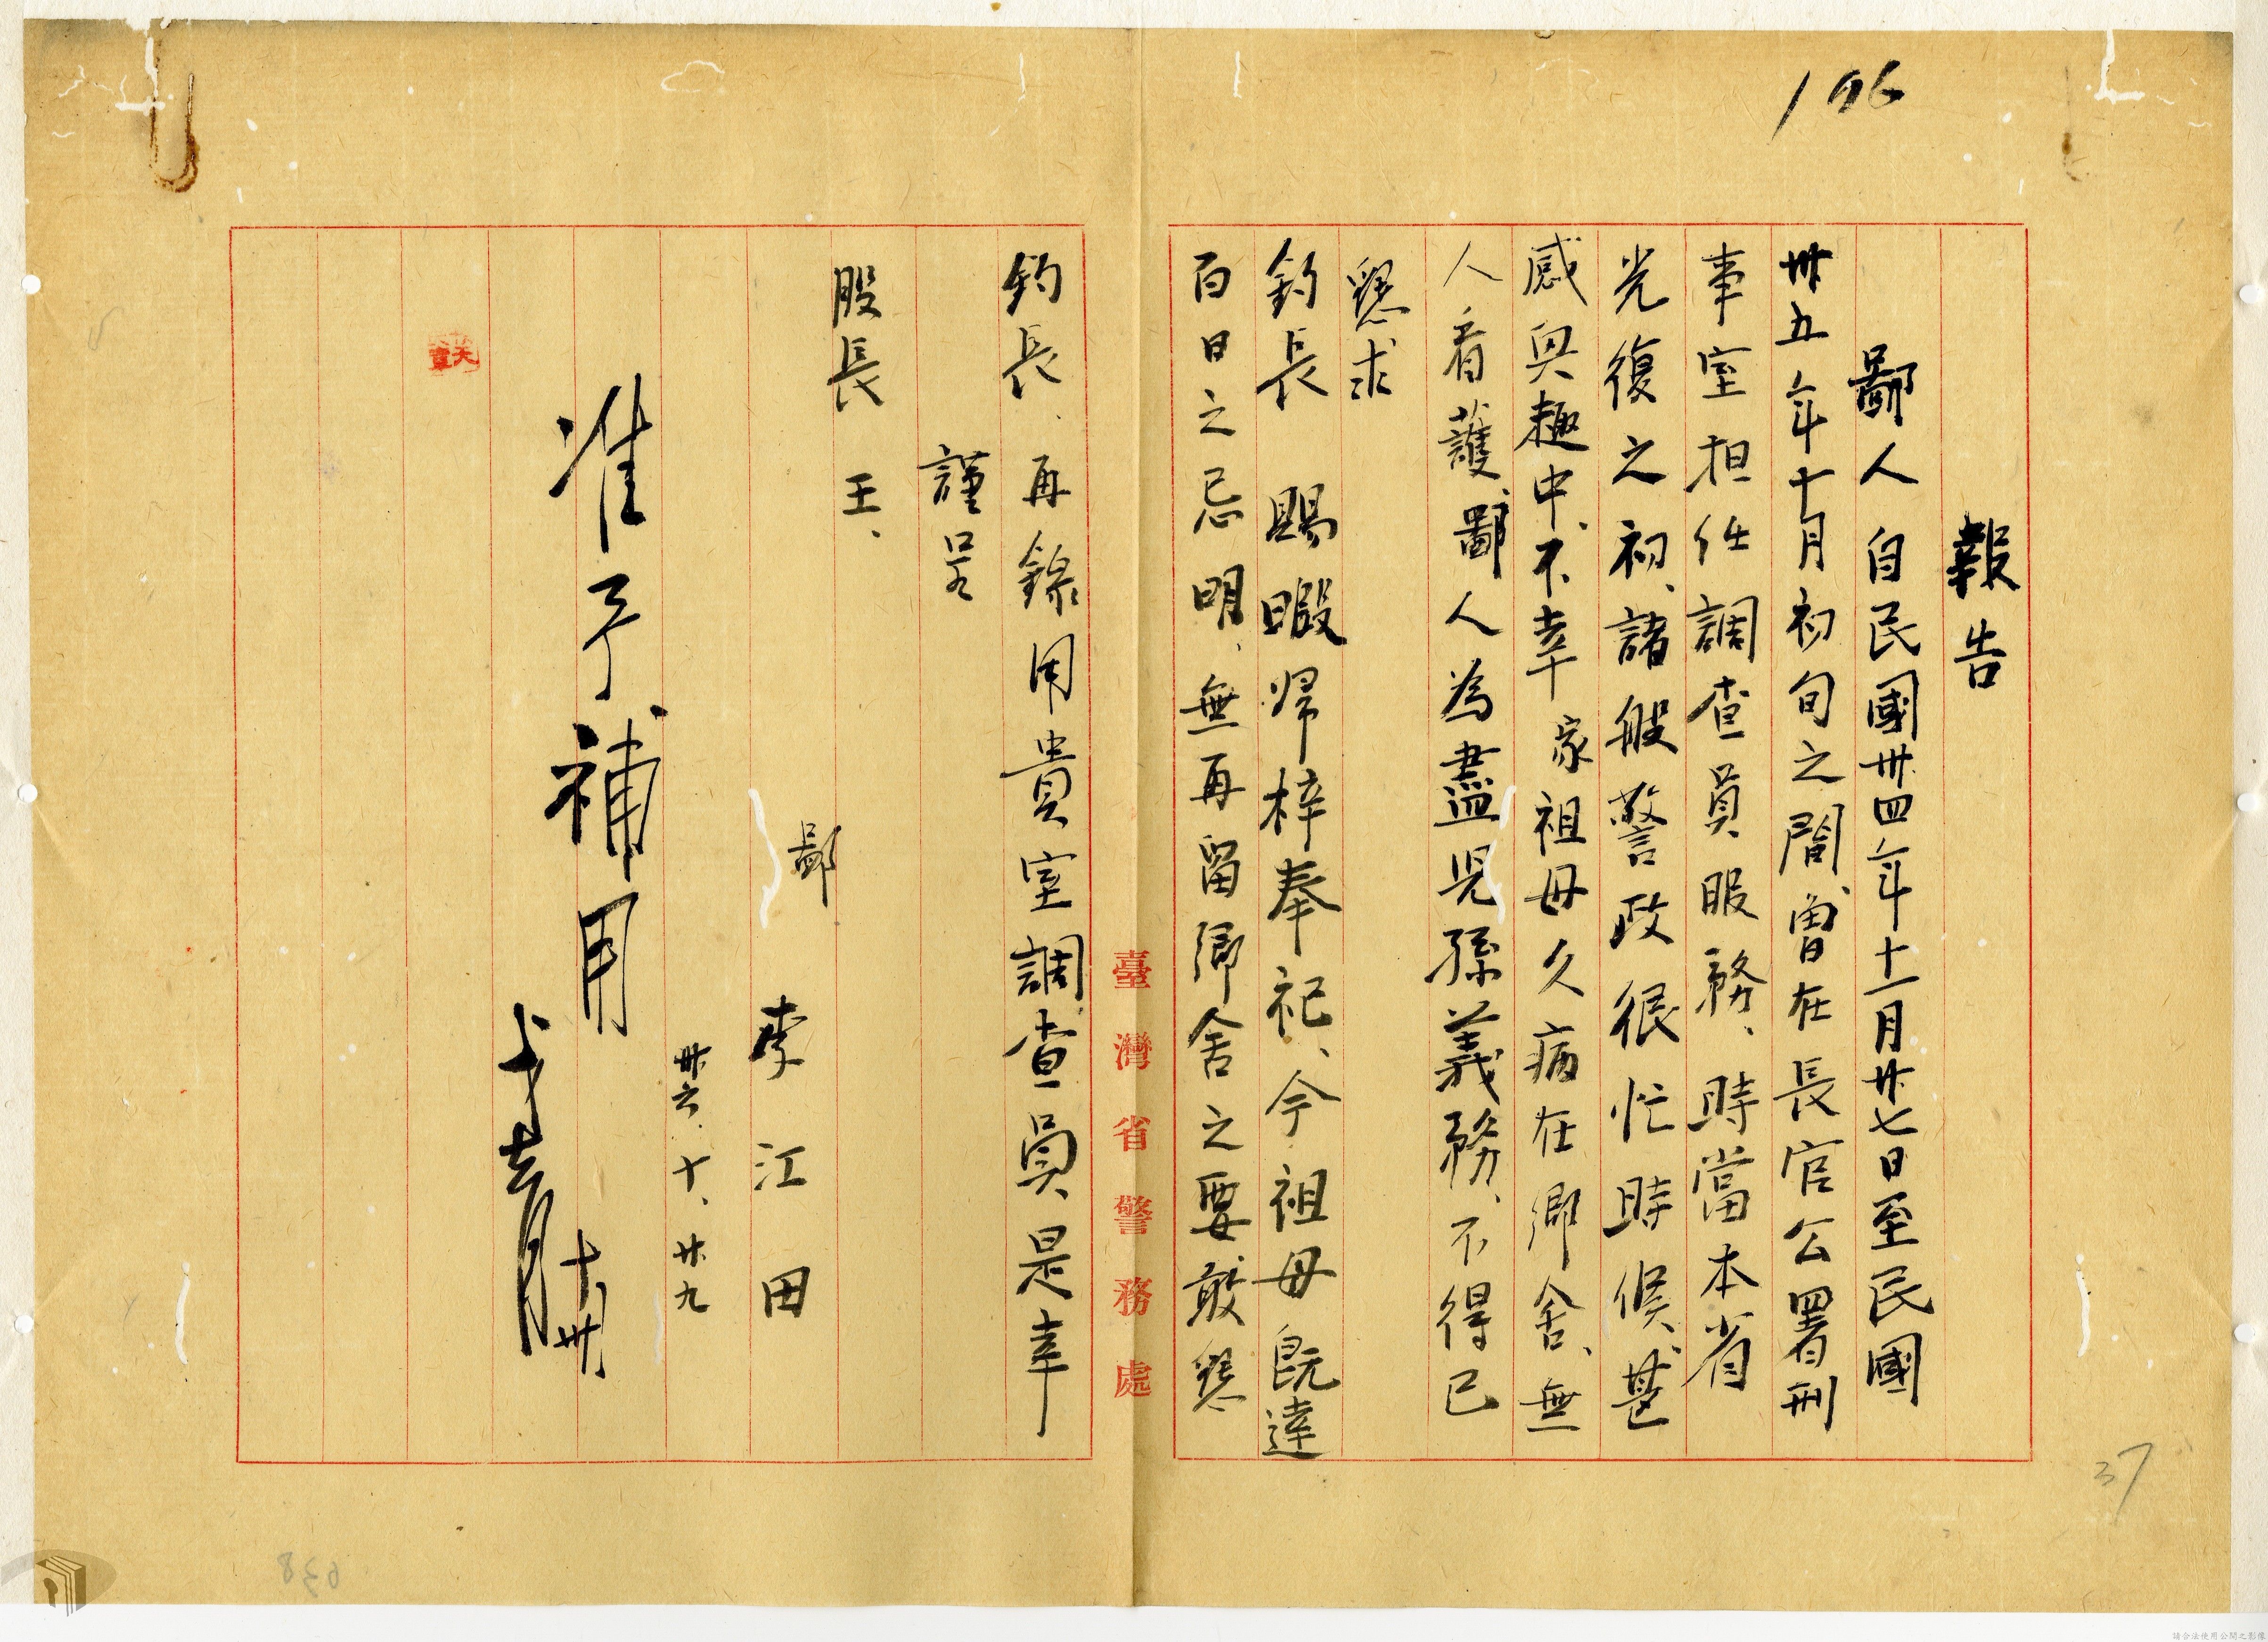 196
報告
鄙人自民國卅四年十一月廿七日至民國
卅五年十月初旬之間、曾在長官公署刑
事室担任調查員服務、時當本省
光復之初、諸般警政很忙時候、甚
感興趣中、不幸家祖母久病在鄉舍、無
人看護、鄙人為盡児孫義務、不得已
懇求
鈞長 賜暇帰梓奉祀、今祖母既達
百日之忌明、無再留鄉舍之要敢懇
鈞長、再錄用貴室調查員是幸
謹呈
股長 王、
鄙 李江田
卅六、十、廿九
准予補用
十卅
臺灣省警務處
37
638
請合法使用公開之影像